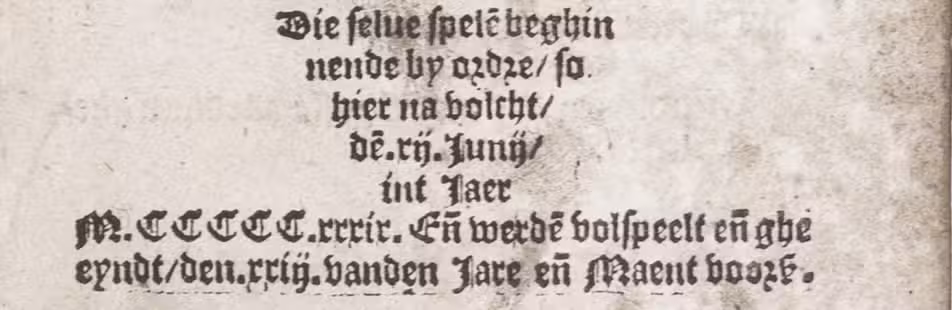 Die selue spelē beghin
nende by ordre/ so
hier na volcht/
dē.xij.Junij/
int Jaer
M.CCCCC.xxxix. Eñ werdē volspeelt eñ ghe
eyndt/den.xxiij.vanden Jare eñ Maent voorß.